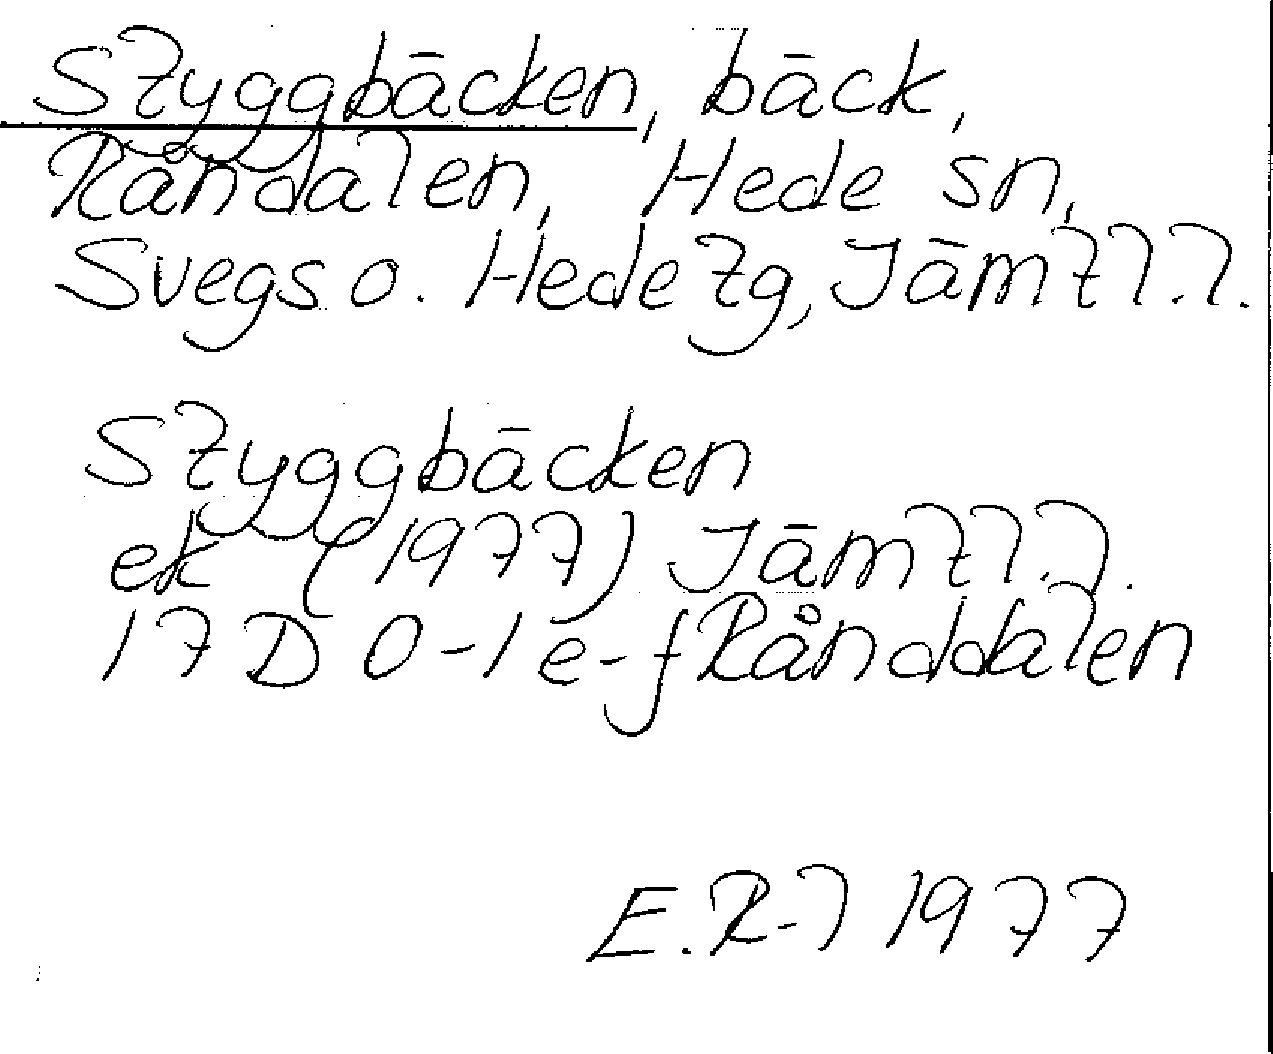 Styggbäcken, bäck,
Råndalen, Hede sn,
Svegs o. Hede tg, Jämtl. l.
Styggbäcken
ek (1977) Jämtl. l.
17D 0-1 e-f Rånddalen
E. R-l 1977